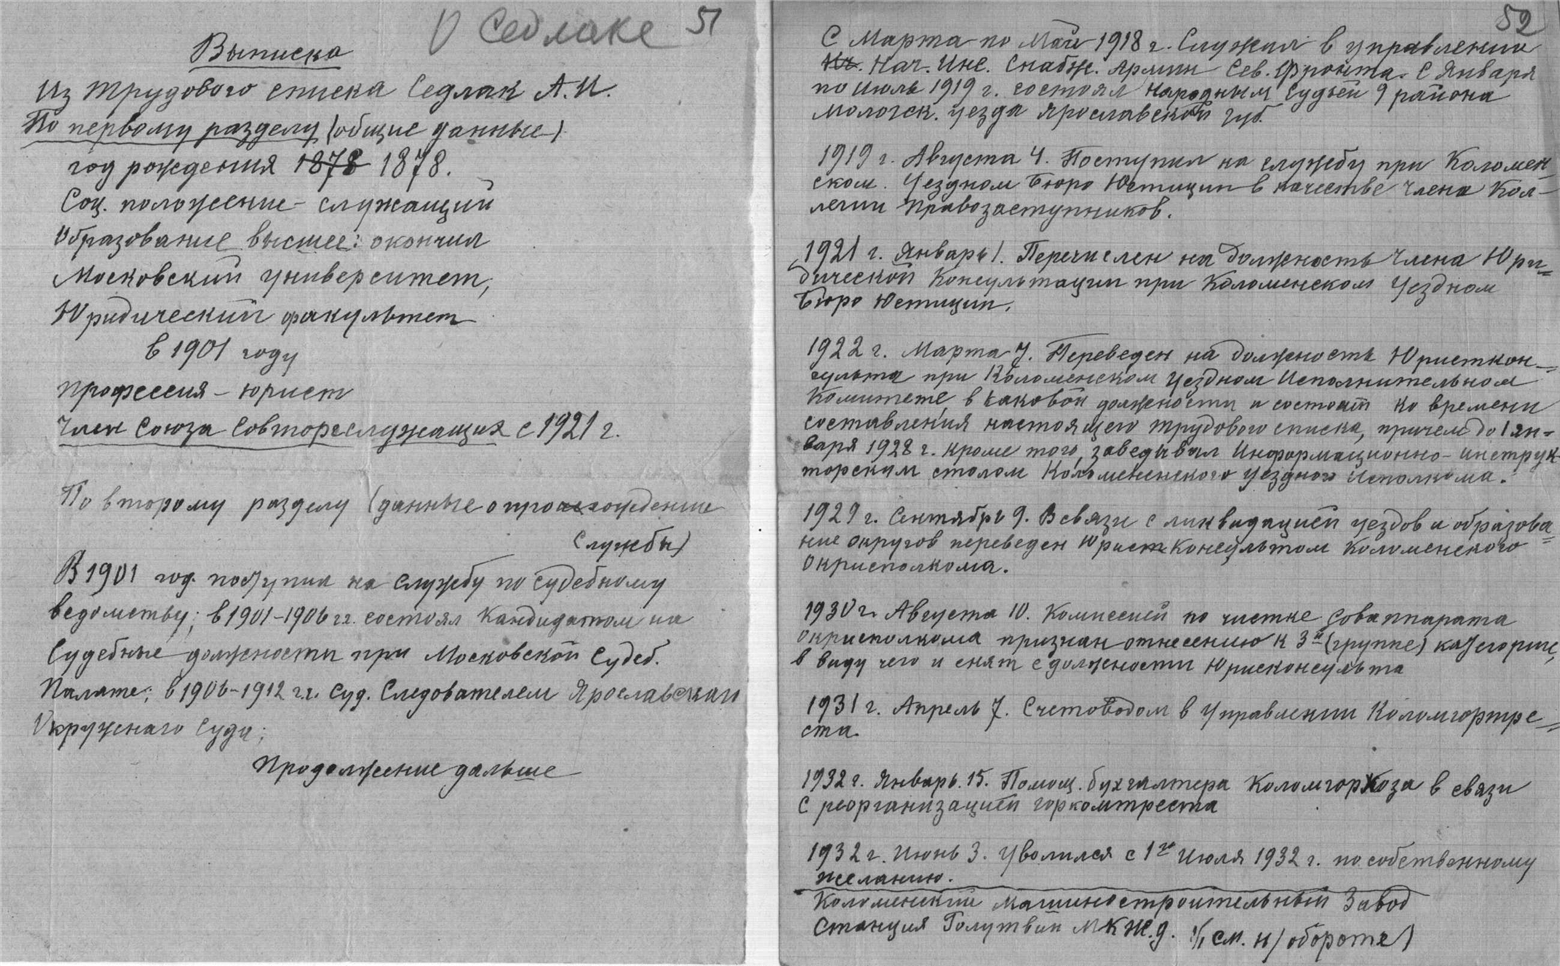 О Седлаке 51
Выписка
Из трудового списка Седлак А.И.
По первому разделу (общие данные)
год рождения 1878 1878.
Соц. положение - служащий
Образование высшее: окончил
Московский университет,
Юридический факультет
в 1901 году
профессия - юрист
Член Союза Совторгслужащих с 1921 г.
По второму разделу (данные о прохождение
службы)
В 1901 год. поступил на службу по судебному
ведомству; в 1901-1906 гг. состоял Кандидатом на
Судебные должности при Московской Судеб.
Палате; в 1906-1912 гг. Суд. Следователем Ярославскаго
Окружнаго Суда;
Продолжение дальше
52
С Марта по Май 1918 г. Служил в управлении
Нач. Инс. Снабж. Армии Сев. Фронта. С Января
по Июль 1919 г. состоял Народным Судьей 9 района
Мологск. уезда Ярославской губ.
1919 г. Августа 4. Поступил на службу при Коломен
ском. Уездном Бюро Юстиции в качестве Члена Кол-
легии Правозаступников.
1921 г. Январь 1. Перечислен на должность Члена Юри=
дической Консультации при Коломенском Уездном
Бюро Юстиции.
1922 г. Марта 7. Переведен на должность Юристкон=
сульта при Коломенском Уездном Исполнительном
Комитете, в каковой должности и состоит ко времени
составления настоящего трудового списка, причем до 1 ян=
варя 1928 г. кроме того, заведывал Информационно-инструк
торским столом Коломенского Уездного Исполкома.
1929 г. Сентябрь 9. В связи с ликвидацией уездов и образова=
ние округов переведен Юристконсультом Коломенского
Окрисполкома.
1930 г. Августа 10. Комиссией по чистке Соваппарата
окрисполкома признан отнесению к 3й (группе) категории,
в виду чего и снят с должности Юрисконсульта
1931 г. Апрель 7. Счетоводом в Управлении Коломгортре=
ста.
1932 г. Январь. 15. Помощ. бухгалтера Коломгоркоза в связи
с реорганизацией горкомтреста
1932 г. Июнь 3. Уволился с 1го Июля 1932 г. по собственному
желанию.
Коломенский машиностроительный Завод
Станция Голутвин МКж.д. (см. н/обороте)